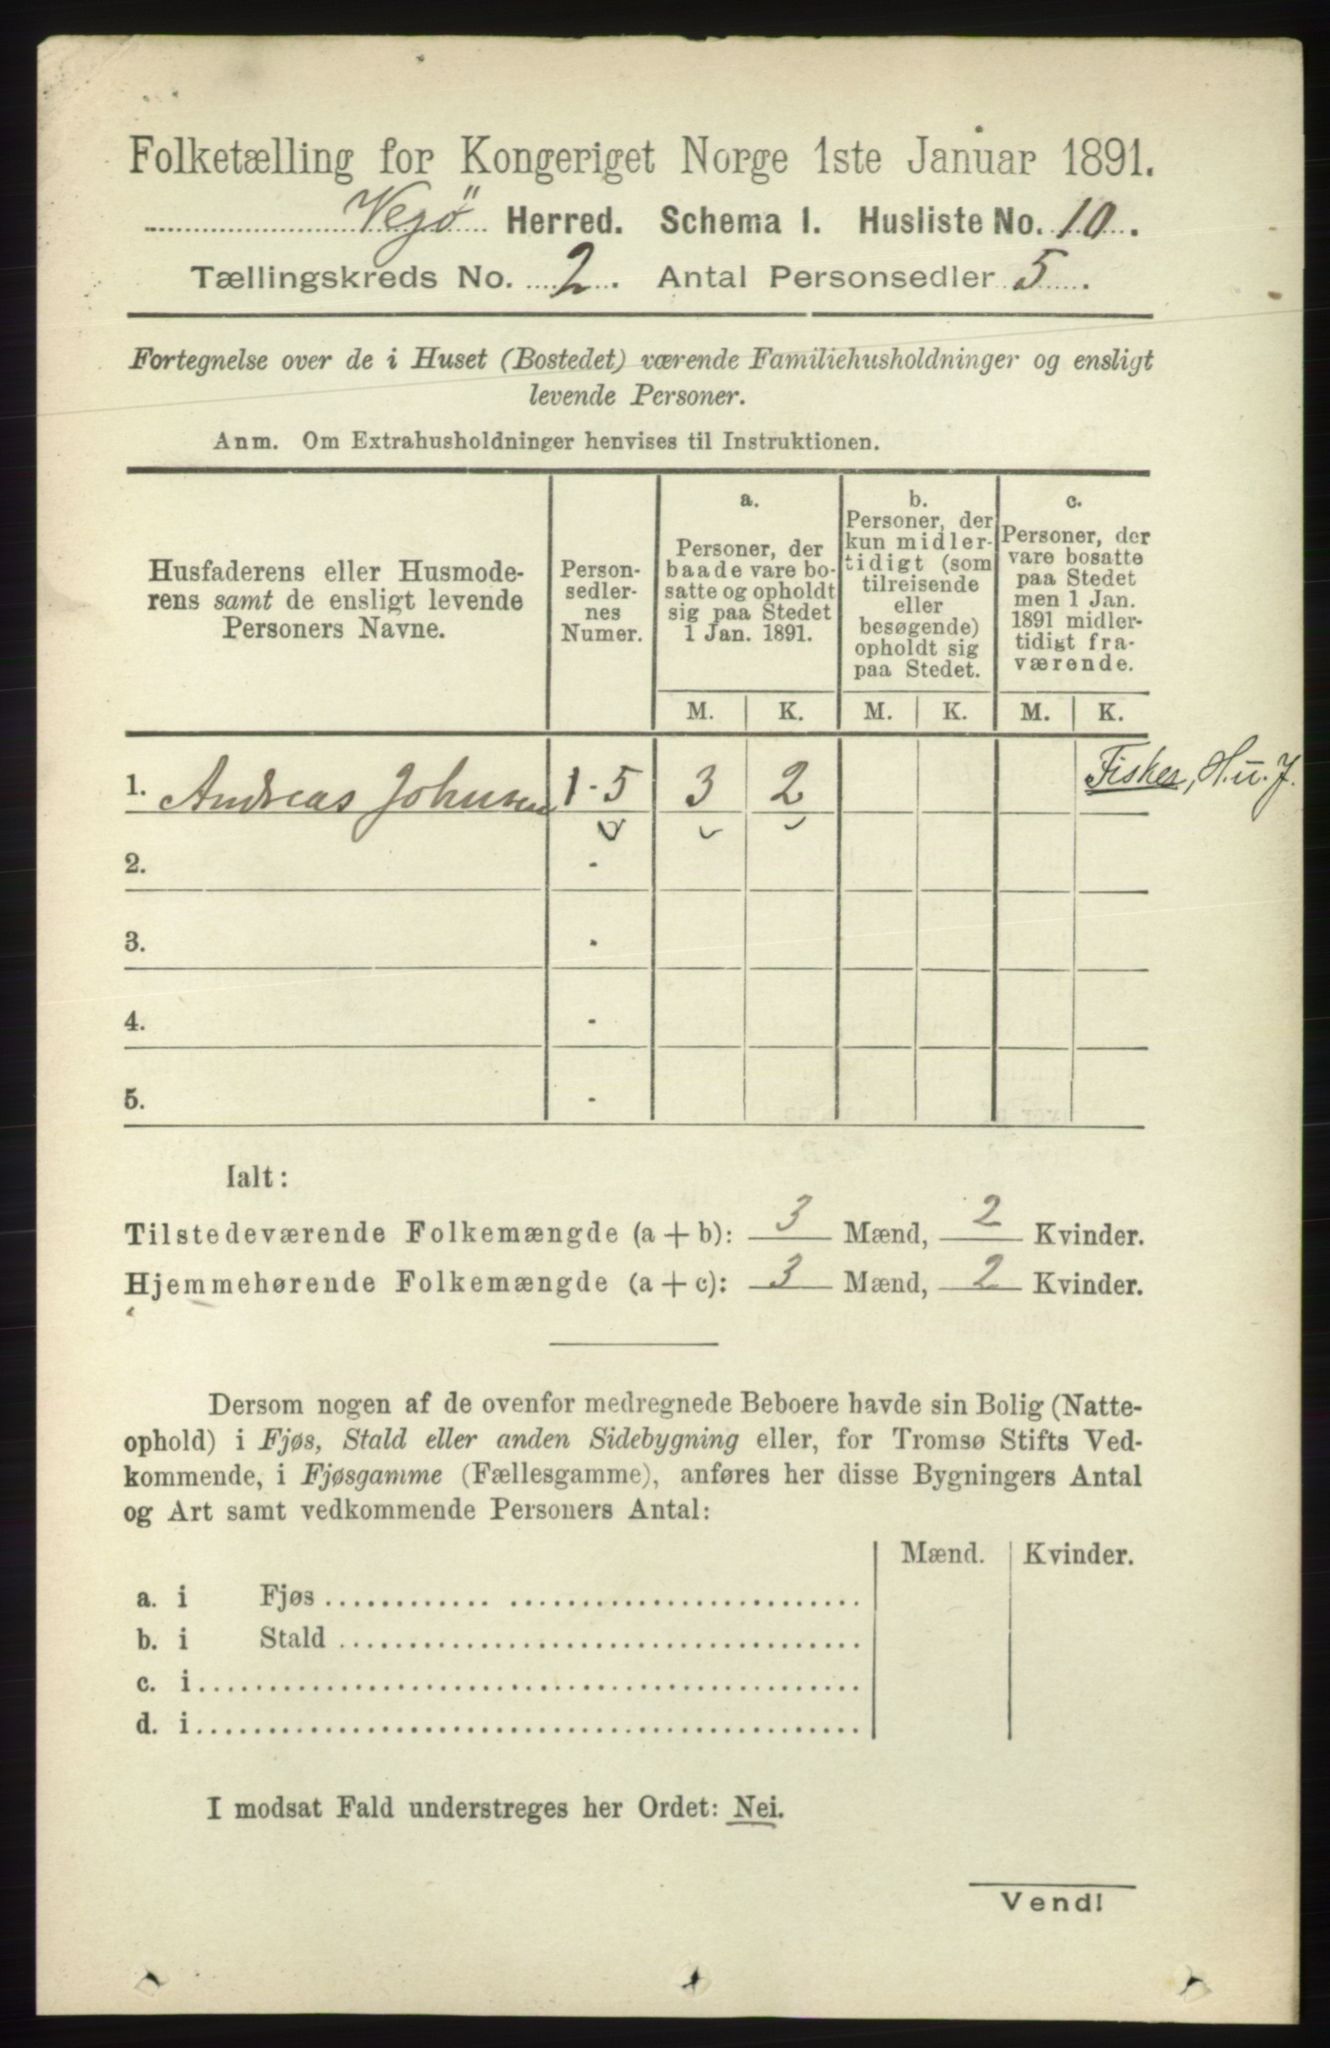 Folketælling for Kongeriget Norge 1ste Januar 1891.
Vegö Herred. Schema 1. Husliste No. 10.
Tællingskreds No. 2. Antal Personsedler 5.
Fortegnelse over de i Huset (Bostedet) værende Familiehusholdninger og ensligt
levende Personer.
Anm. Om Extrahusholdninger henvises til Instruktionen.
Husfaderens eller Husmode-
rens samt de ensligt levende
Personers Navne.
Person-
sedler-
nes
Numer.
a.
Personer, der
baade vare bo-
satte og opholdt
sig paa Stedet
1 Jan. 1891.
b.
Personer, der
kun midler-
tidigt (som
tilreisende
eller
besøgende)
opholdt sig
paa Stedet.
c.
Personer, der
vare bosatte
paa Stedet
men 1 Jan.
1891 midler-
tidigt fra-
værende.
M. K. M. K. M. K.
1. Andreas Johnsen 1-5 3 2 Fisker, H.u.J.
2. -
3. -
4. -
5. -
Ialt:
Tilstedeværende Folkemængde (a + b): 3 Mænd, 2 Kvinder.
Hjemmehørende Folkemængde (a + c): 3 Mænd, 2 Kvinder.
Dersom nogen af de ovenfor medregnede Beboere havde sin Bolig (Natte-
ophold) i Fjøs, Stald eller anden Sidebygning eller, for Tromsø Stifts Ved-
kommende, i Fjøsgamme (Fællesgamme), anføres her disse Bygningers Antal
og Art samt vedkommende Personers Antal:
Mænd. Kvinder.
a. i Fjøs
b. i Stald
c. i
d. i
I modsat Fald understreges her Ordet: Nei.
Vend!